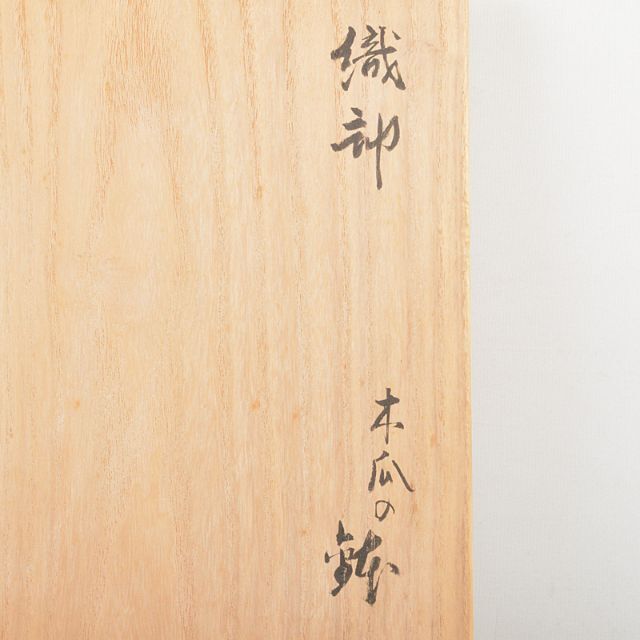 織部
木瓜の鉢